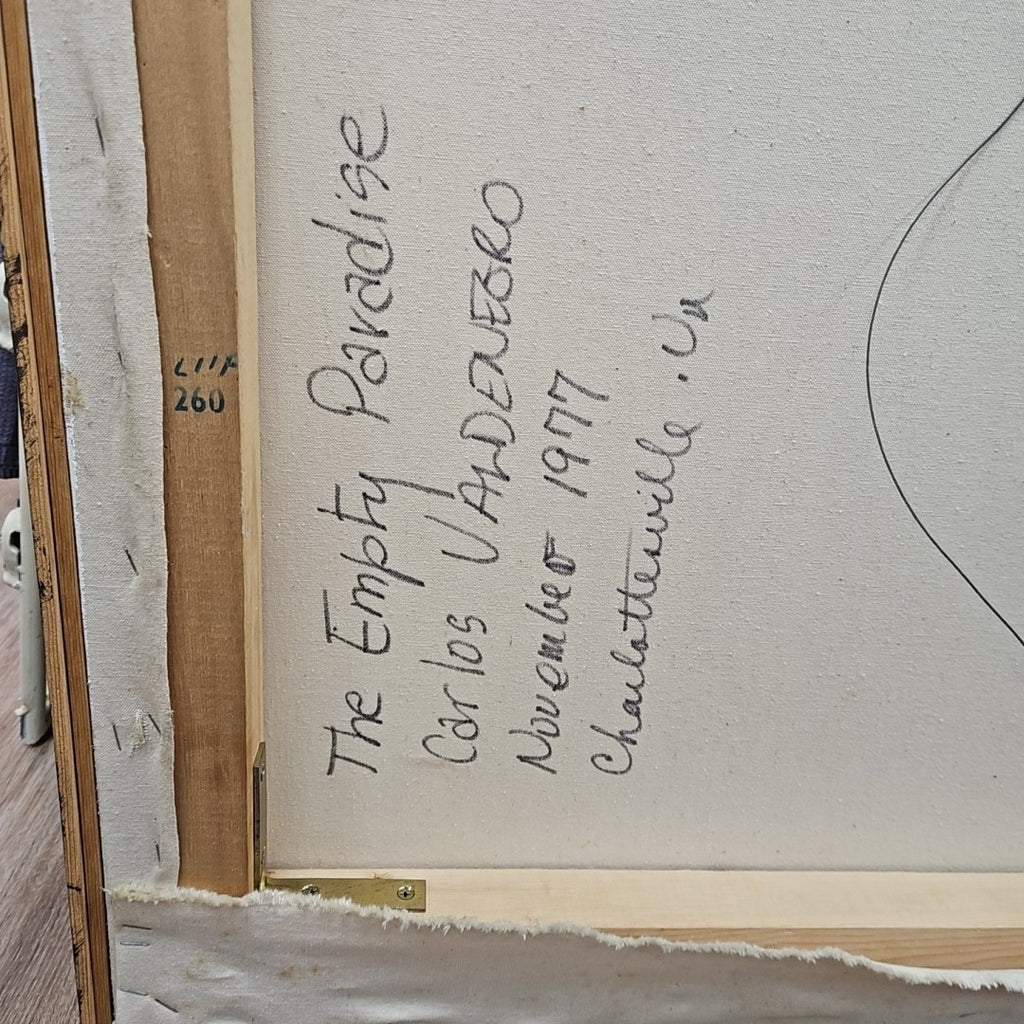 The Empty Paradise
Carlos VALDENEBRO
November 1977
Charlottesville. Va
260